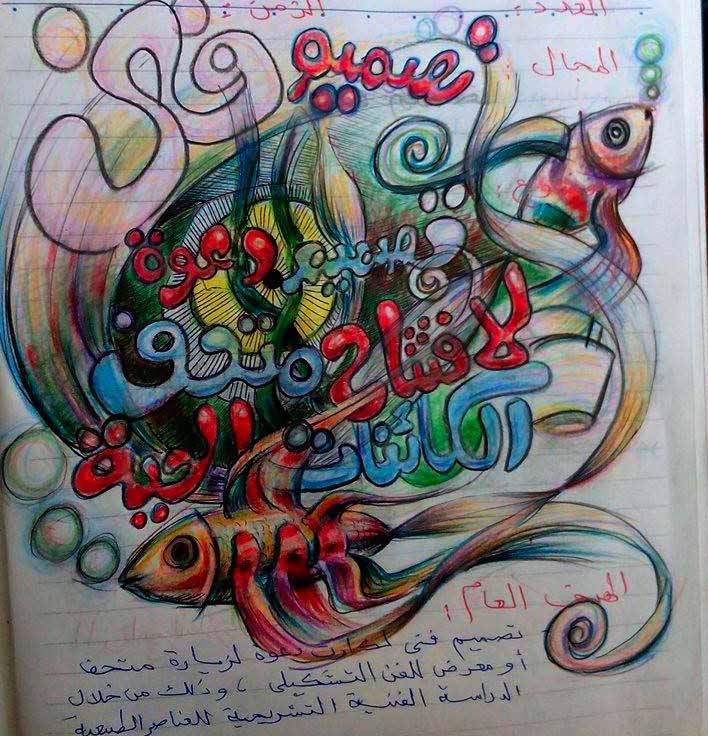 العدد : الزمن :
المجال :
تصميم فنى
تصميم دعوة
لافتتاح متحف
الكائنات الحية
الهدف العام :
تصميم فنى لكارت دعوة لزيارة متحف
أو معرض للفن التشكيلى ، وذلك من خلال
الدراسة الفنية التشريحية للعناصر الطبيعية